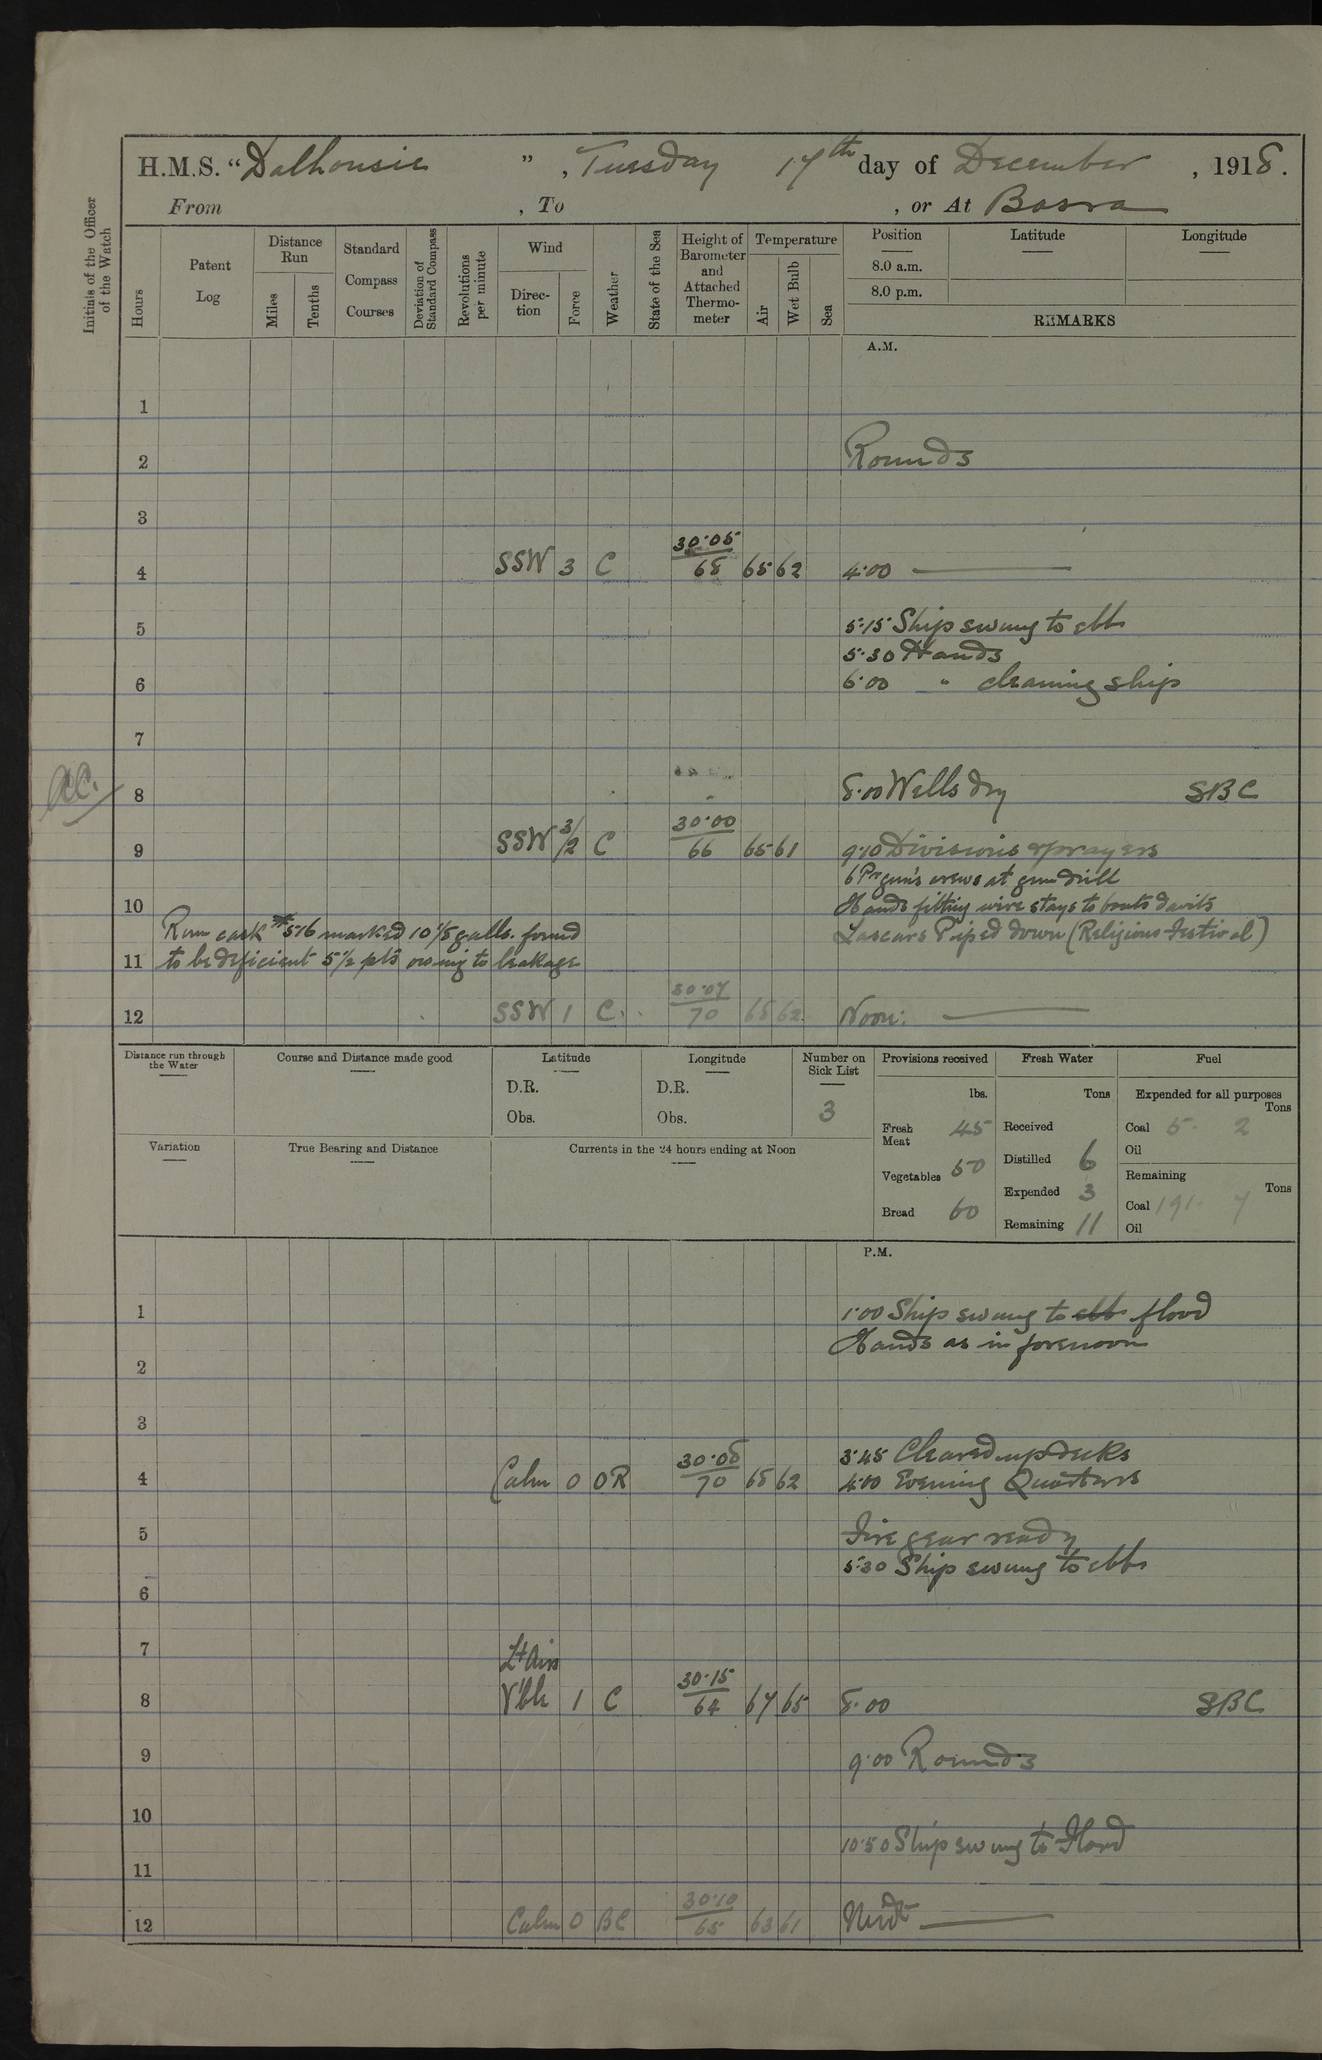 H.M.S. “Dalhousie”, Tuesday 17th day of December, 1918.
From , To , or At Basra
Initials of the Officer of the Watch
Hours
Patent Log
Distance Run
Miles
Tenths
Standard Compass Courses
Deviation of Standard Compass
Revolutions per minute
Wind
Direction
Force
Weather
State of the Sea
Height of Barometer and Attached Thermometer
Temperature
Air
Wet Bulb
Sea
Position
8.0 a.m.
8.0 p.m.
Latitude
Longitude
REMARKS
A.M.
1
2 Rounds
3
4 SSW 3 C 30.05 68 65 62 4.00
5 5.15 Ship swung to ebb
5.30 Hands
6 6.00 " cleaning ship
7
8 8.00 Wells dry SBC
9 SSW 3/2 C 30.00 66 65 61 9.10 Divisions & prayers
6 Pr gun's crews at gun drill
10 Hands fitting wire stays to boats davits
Rum cask #516 marked 10 1/8 galls. found Lascars Piped down (Religious Festival)
11 to be deficient 5 1/2 pts owing to leakage
12 SSW 1 C. 30.07 70 68 62 Noon:
Distance run through the Water
Course and Distance made good
Latitude
D.R.
Obs.
Longitude
D.R.
Obs.
Number on Sick List
3
Provisions received
lbs.
Fresh Meat 45
Vegetables 50
Bread 60
Fresh Water
Tons
Received
Distilled 6
Expended 3
Remaining 11
Fuel
Expended for all purposes
Tons
Coal 5. 2
Oil
Remaining
Tons
Coal 191. 7
Oil
Variation
True Bearing and Distance
Currents in the 24 hours ending at Noon
P.M.
1 1.00 Ship swung to ebb flood
Hands as in forenoon
2
3
3.45 Cleared up decks
4 Calm 0 OR 30.08 70 68 62 4.00 Evening Quarters
5 Fire gear ready
5.30 Ship swung to ebb
6
7
Lt Airs
8 V'ble 1 C 30.15 64 67 65 8.00 SBC
9 9.00 Rounds
10
10.50 Ship swung to Flood
11
12 Calm 0 BC 30.10 65 63 61 Midt